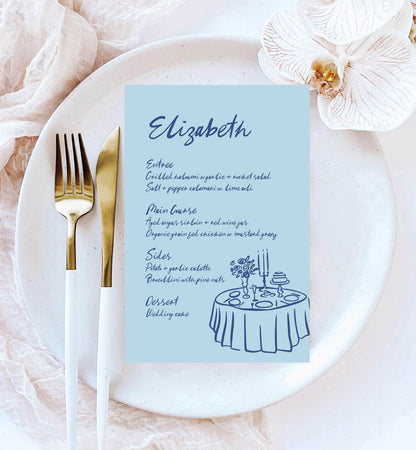 Elizabeth
Entree
Grilled haloumi w garlic + rocket salad
Salt + pepper calamari w. lime aioli
Main Course
Aged angus sirloin + red wine jus
Organic grain fed chicken w. mustard gravy
Sides
Potato + garlic galette
Broccolini with pine nuts
Dessert
Wedding cake